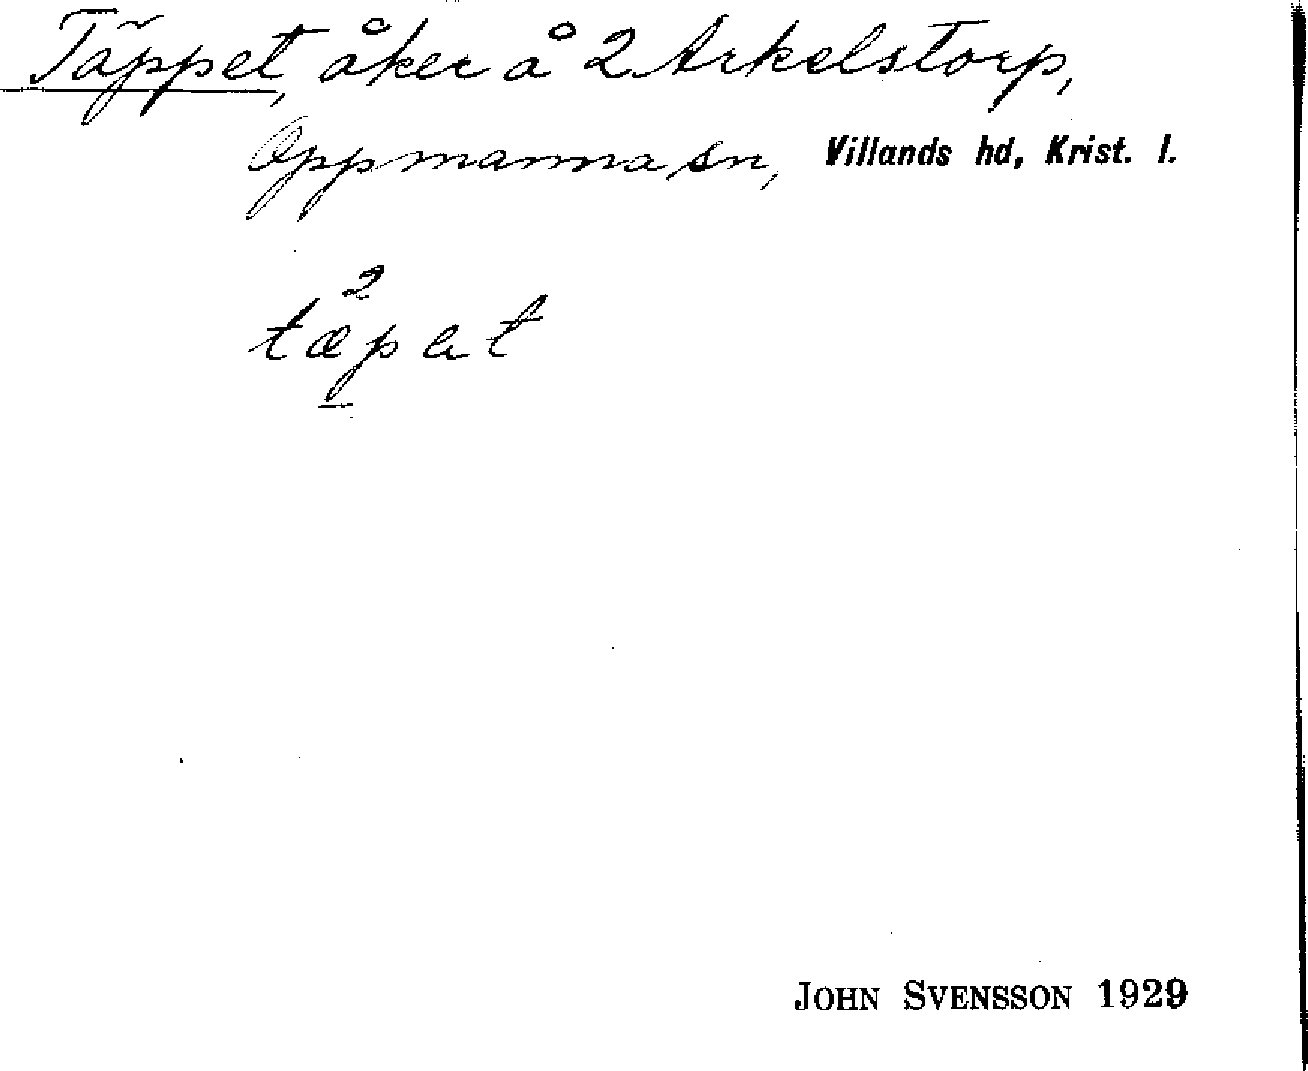 Täppet, åker å 2 Arkelstorp,
Oppmanna sn, Villands hd, Krist. l.
2
tæpat
JOHN SVENSSON 1929